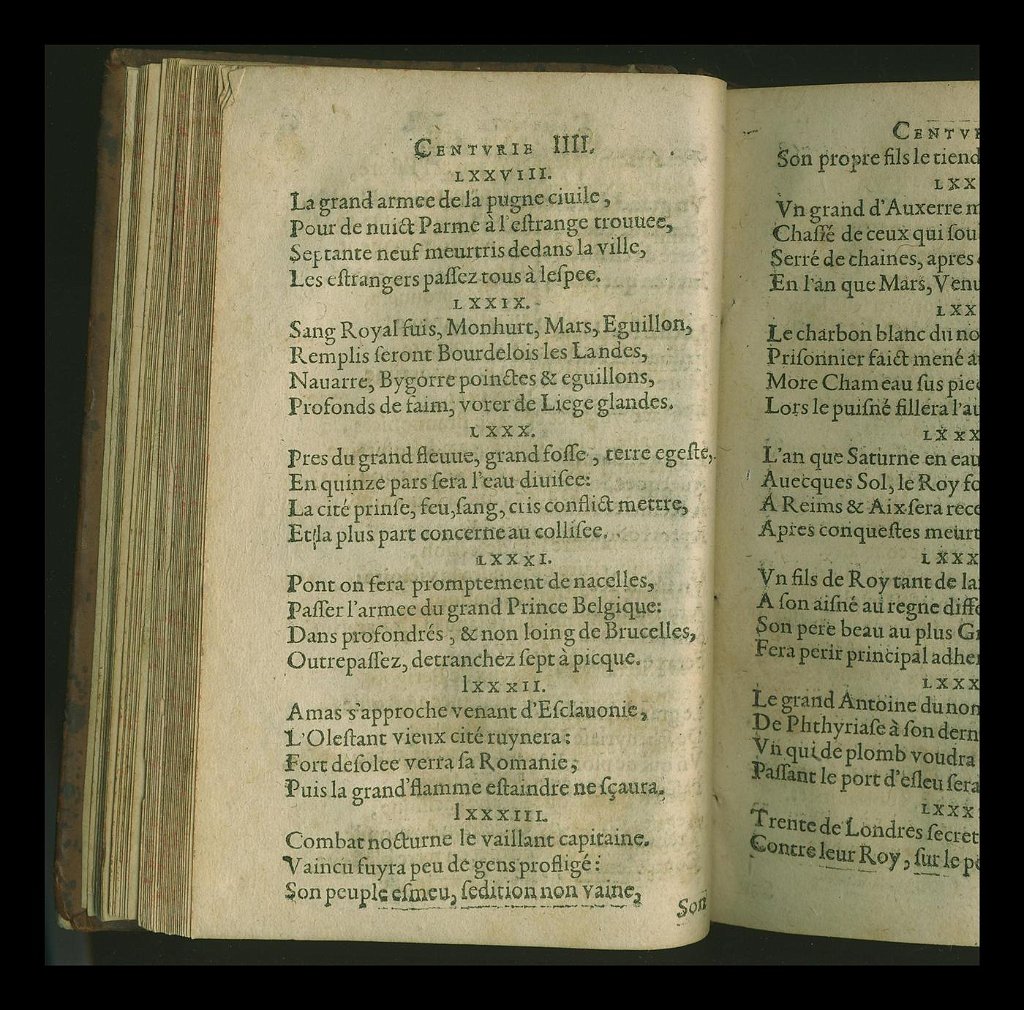 CENTVRIE IIII.
LXXVIII.
La grand armee de la pugne ciuile,
Pour de nuict Parme à l'eſtrange trouuee,
Septante neuf meurtris dedans la ville,
Les eſtrangers paſſez tous à leſpee.
LXXIX.
Sang Royal fuis, Monhurt, Mars, Eguillon,
Remplis ſeront Bourdelois les Landes,
Nauarre, Bygorre poinctes & eguillons,
Profonds de faim, vorer de Liege glandes.
LXXX.
Pres du grand fleuue, grand foſſe, terre egeſte,
En quinze pars ſera l'eau diuiſee:
La cité prinſe, feu, ſang, cris conflict mettre,
Et la plus part concerne au colliſee.
LXXXI.
Pont on fera promptement de nacelles,
Paſſer l'armee du grand Prince Belgique:
Dans profondrés, & non loing de Brucelles,
Outrepaſſez, detranchez ſept à picque.
lxxxII.
Amas s'approche venant d'Eſclauonie,
L'Oleſtant vieux cité ruynera:
Fort deſolee verra ſa Romanie,
Puis la grand'flamme eſtaindre ne ſçaura.
lxxxIII.
Combat nocturne le vaillant capitaine.
Vaincu fuyra peu de gens profligé:
Son peuple eſmeu, ſedition non vaine,
Son
CENTVR
Son propre fils le tiend
LXX
Vn grand d'Auxerre m
Chaſſé de ceux qui ſou
Serré de chaines, apres
En l'an que Mars, Venu
LXX
Le charbon blanc du no
Priſonnier faict mené a
More Chameau ſus pie
Lors le puiſné fillera l'au
LXXX
L'an que Saturne en eau
Auecques Sol, le Roy fo
A Reims & Aix ſera rece
Apres conqueſtes meurt
LXXX
Vn fils de Roy tant de la
A ſon aiſné au regne diffe
Son pere beau au plus G
Fera perir principal adhe
LXXX
Le grand Antoine du nom
De Phthyriaſe à ſon dern
Vn qui de plomb voudra
Paſſant le port d'eſleu ſera
LXXX
Trente de Londres ſecret
Contre leur Roy, ſur le p